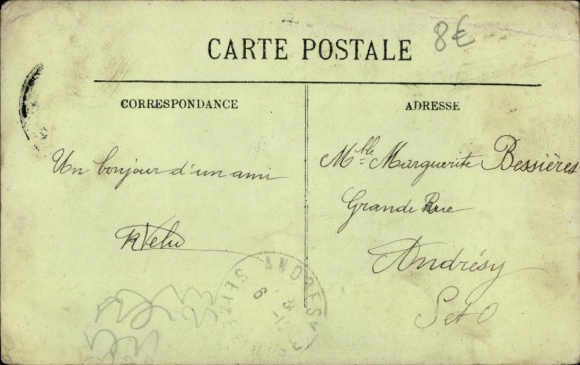 8€
CARTE POSTALE
CORRESPONDANCE
ADRESSE
Un bonjour d'un ami
Velu
Mlle Marguerite Bessières
Grande Rue
Andrésy
S et O
ANDRESY